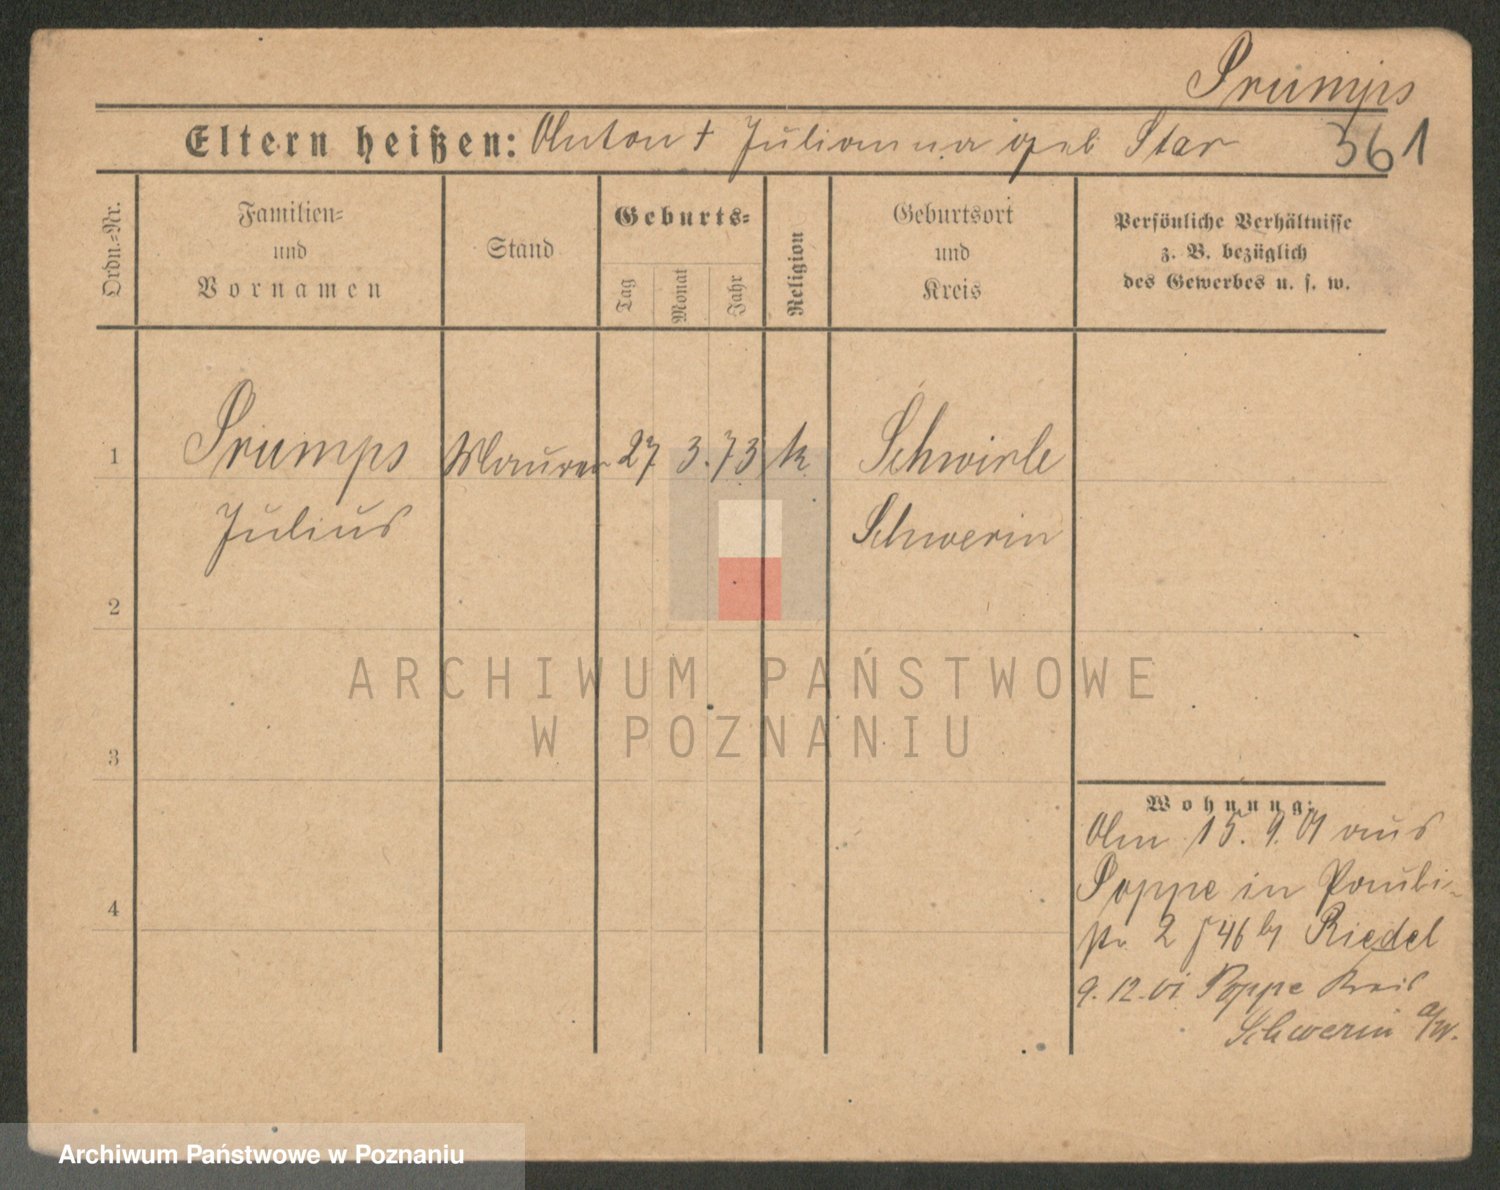 Prumps
Eltern heißen: Anton + Julianna geb Star
361
Ordn.-Nr.
Familien-
und
Vornamen
Stand
Geburts-
Tag
Monat
Jahr
Religion
Geburtsort
und
Kreis
Persönliche Verhältnisse
z. B. bezüglich
des Gewerbes u. s. w.
1
Prumps
Maurer
27 3. 73
k
Schwirle
Julius
Schwerin
2
3
4
Wohnung:
Am 15. 9. 01 aus
Poppe in
2 46 Riedel
9. 12. 01 Poppe Kreis
Schwerin a/W.
ARCHIWUM PAŃSTWOWE
W POZNANIU
Archiwum Państwowe w Poznaniu